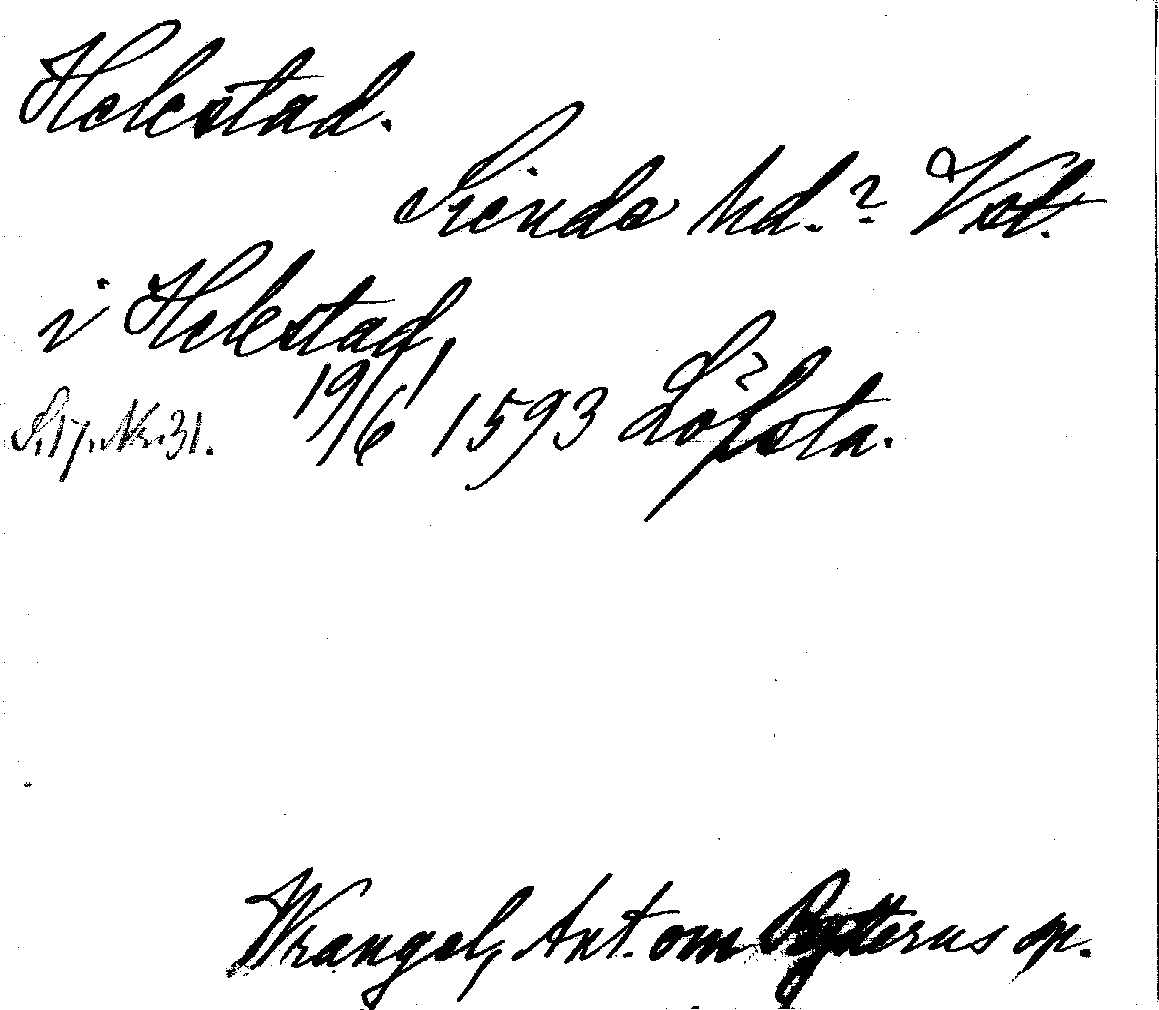 Helestad.
Siende hd.? Vst.
i Helestad,
S. 17. Nr. 31. 19/6 1593 Löfsta.
Wrangel, Ant. om Rytterns sp.